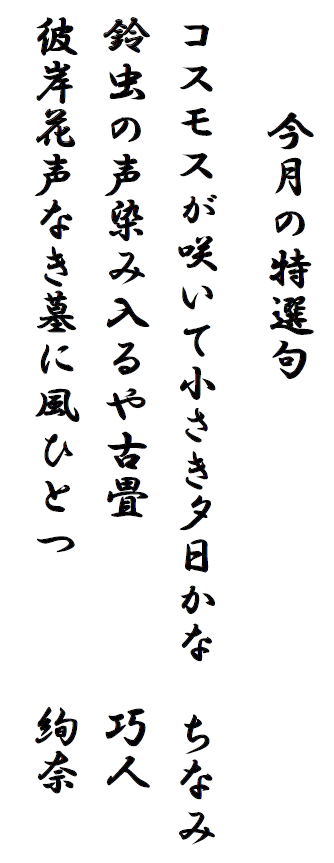 今月の特選句
コスモスが咲いて小さき夕日かな　ちなみ
鈴虫の声染み入るや古畳　巧人
彼岸花声なき墓に風ひとつ　絢奈